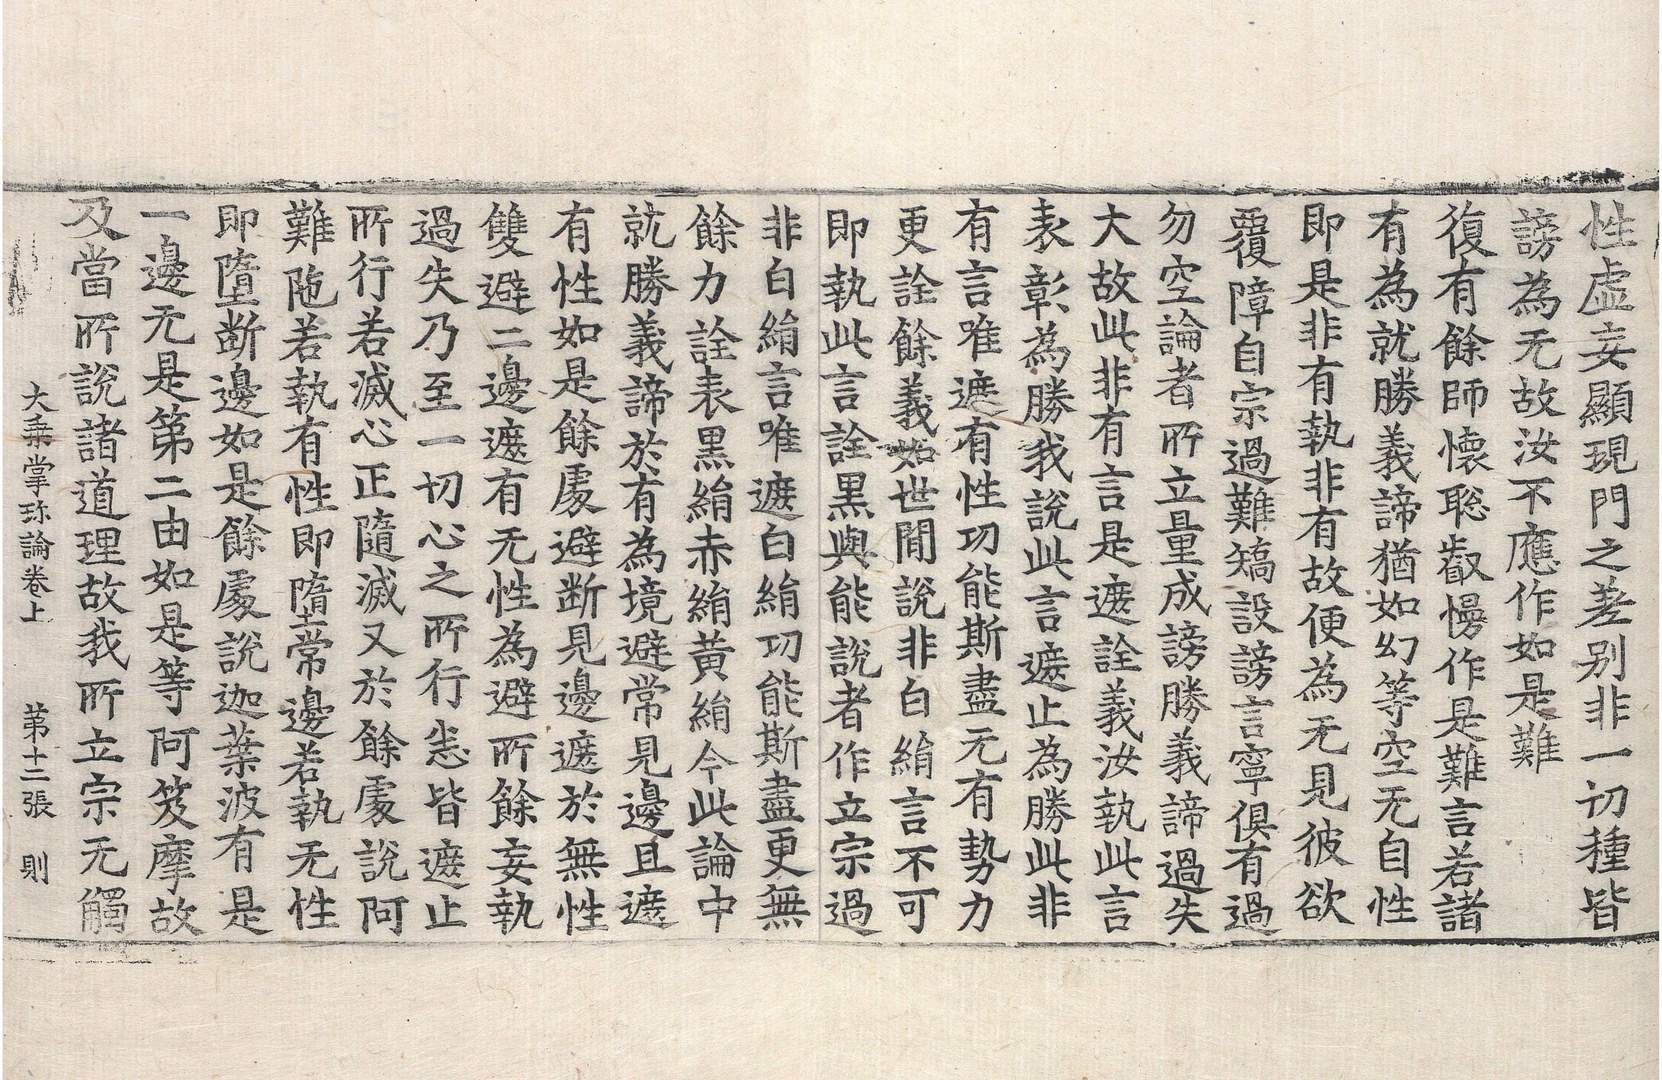 性虛妄顯現門之差別非一切種皆
謗為无故汝不應作如是難
復有餘師懷聡叡慢作是難言若諸
有為就勝義諦猶如幻等空无自性
即是非有執非有故便為无見彼欲
覆障自宗過難矯設謗言寧俱有過
勿空論者所立量成謗勝義諦過失
大故此非有言是遮詮義汝執此言
表彰為勝我說此言遮止為勝此非
有言唯遮有性功能斯盡无有勢力
更詮餘義如世間說非白絹言不可
即執此言詮黑與能說者作立宗過
非白絹言唯遮白絹功能斯盡更無
餘力詮表黑絹赤絹黃絹今此論中
就勝義諦於有為境避常見邊且遮
有性如是餘處避断見邊遮於無性
雙避二邊遮有无性為避所餘妄執
過失乃至一切心之所行悉皆遮止
所行若滅心正隨滅又於餘處說阿
難陁若執有性即墮常邊若執无性
即墮断邊如是餘處說迦葉波有是
一邊无是第二由如是等阿笈摩故
及當所說諸道理故我所立宗无觸
大乗掌珎論卷上 第十二張 則